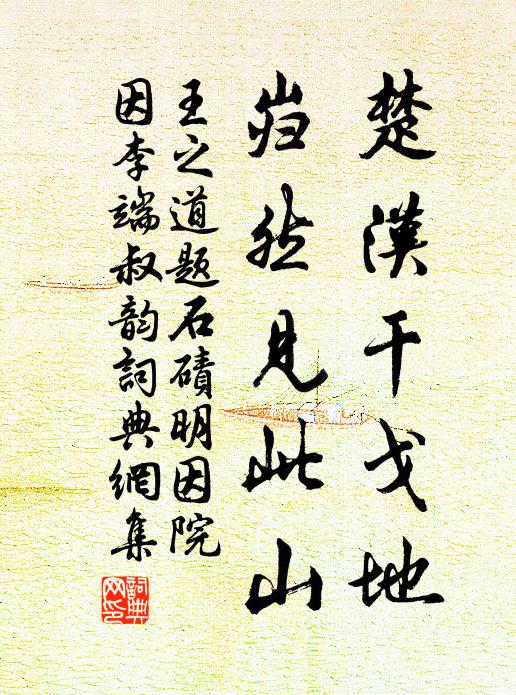 楚漢干戈地
岿然見此山
王之道題石磧明因院
因李端叔韵詞典網集
詞典網印